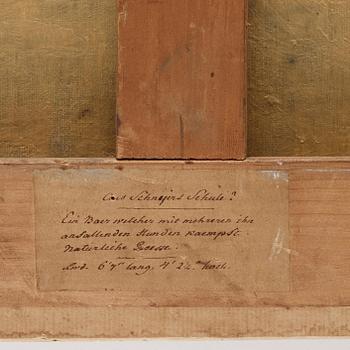 Schneyers Schule?
Ein Baer welcher mit mehreren ihn
anfallenden Hunden kaempft.
Natürliche Groesse.
6' 7" lang. 4' 2 hoch.